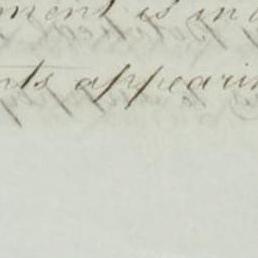 ment is in
nts appearin